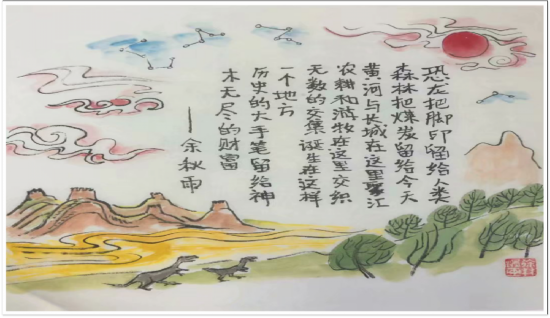 恐龙把脚印留给人类
森林把煤炭留给今天
黄河与长城在这里聚汇
农耕和游牧在这里交织
无数的交集诞生在这样
一个地方
历史的大手笔留给神
木无尽的财富
——余秋雨